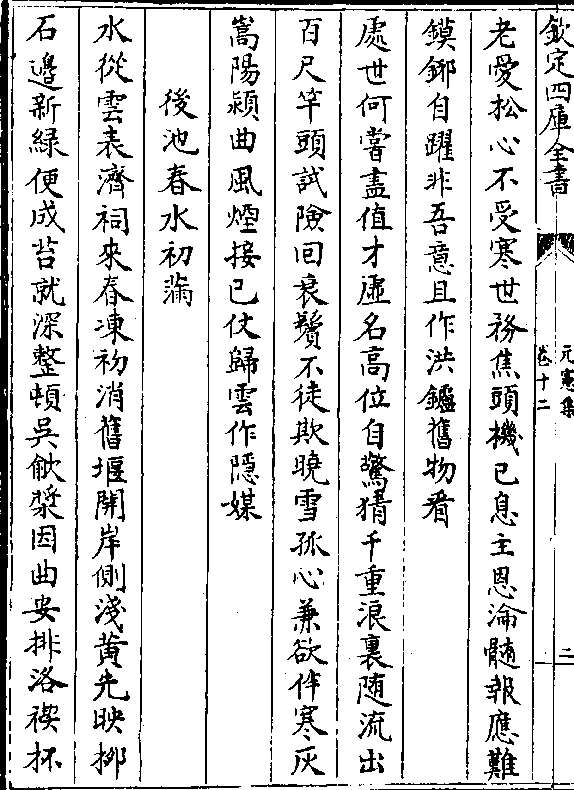 欽定四庫全書
元憲集
卷十二
二
老愛松心不受寒世務焦頭機已息主恩淪髓報應難
鏌鋣自躍非吾意且作洪鑪舊物看
處世何嘗盡值才虛名高位自驚猜千重浪裏随流出
百尺竿頭試險回衰鬢不徒欺曉雪孤心兼欲伴寒灰
嵩陽潁曲風煙接已仗歸雲作隱媒
後池春水初滿
水從雲表濟祠來春凍初消舊堰開岸側淺黄先映栁
石邉新緑便成苔就深整頓吳艅槳因曲安排洛禊杯